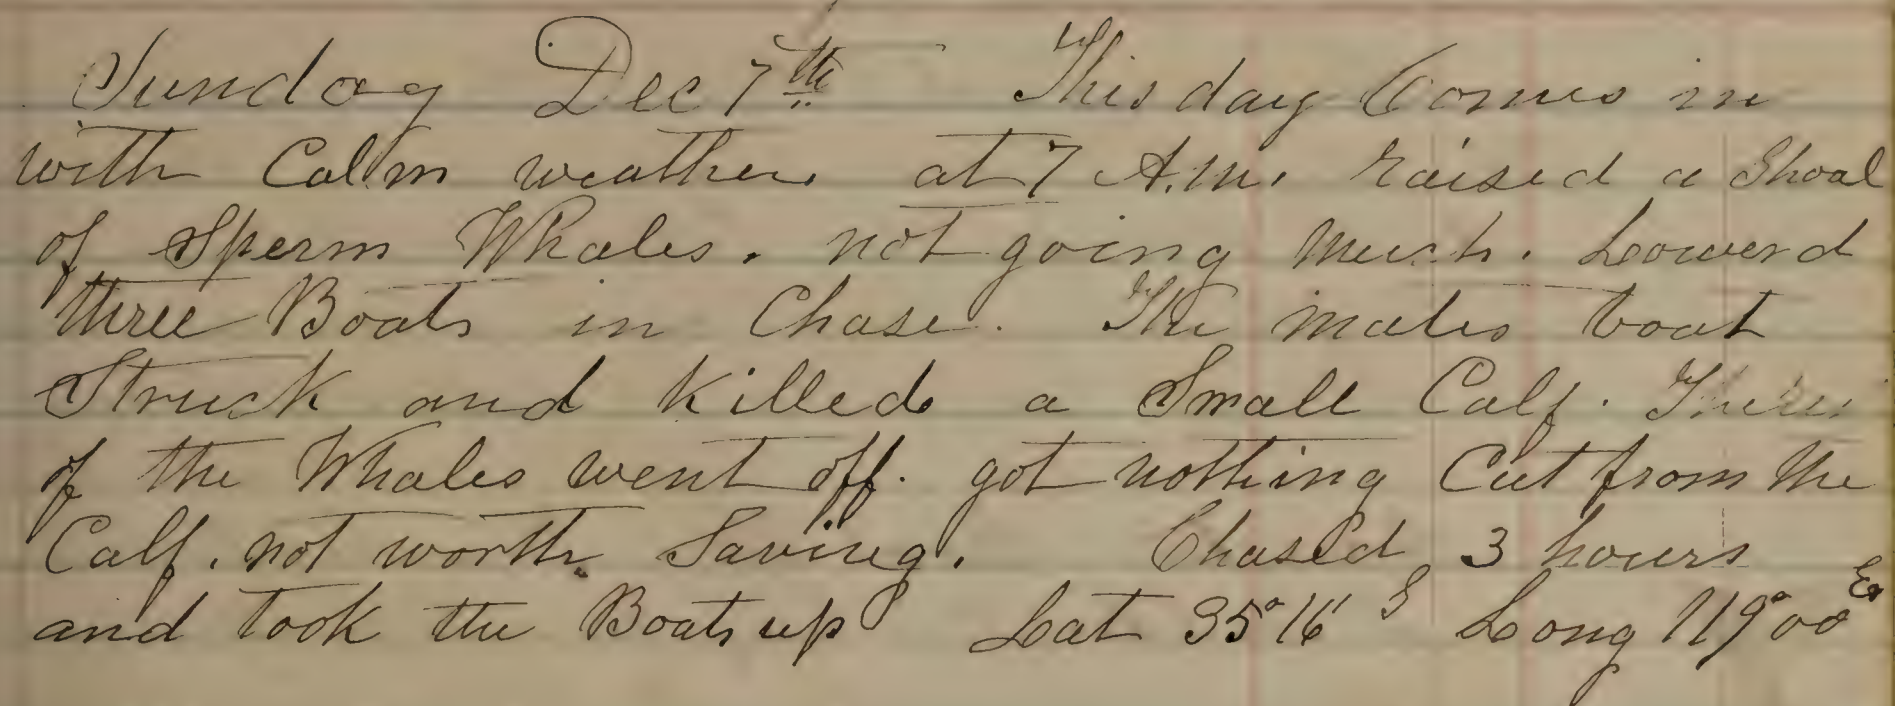 Sunday Dec 7th This day Comes in
with Calm weather. at 7 A.M. raised a Shoal
of Sperm Whales. not going much. Lowerd
three Boats in Chase. The mates boat
Struck and killed a Small Calf.
of the Whales went off. got nothing Cut from the
Calf. not worth Saving. Chased 3 hours
and took the Boats up Lat 35° 16' S Long 119° 00' E